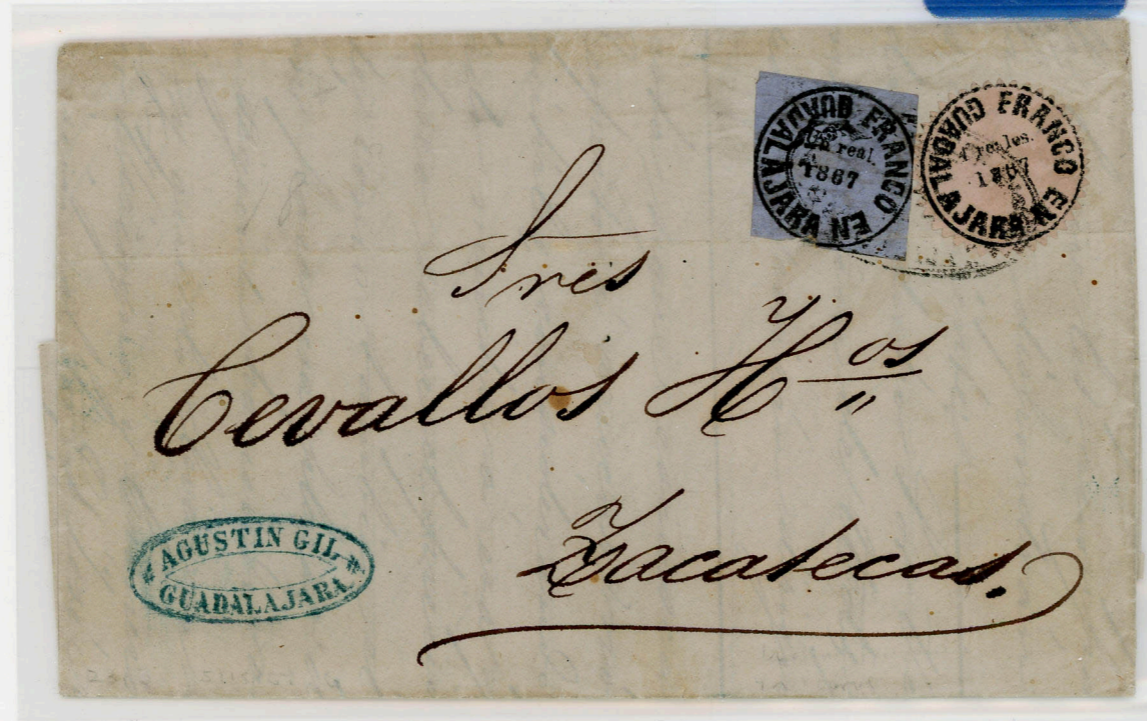 FRANCO EN GUADALAJARA
Un real.
1867
FRANCO EN GUADALAJARA
reales.
1867
Sres
Cevallos H.os
Zacatecas.
AGUSTIN GIL
GUADALAJARA